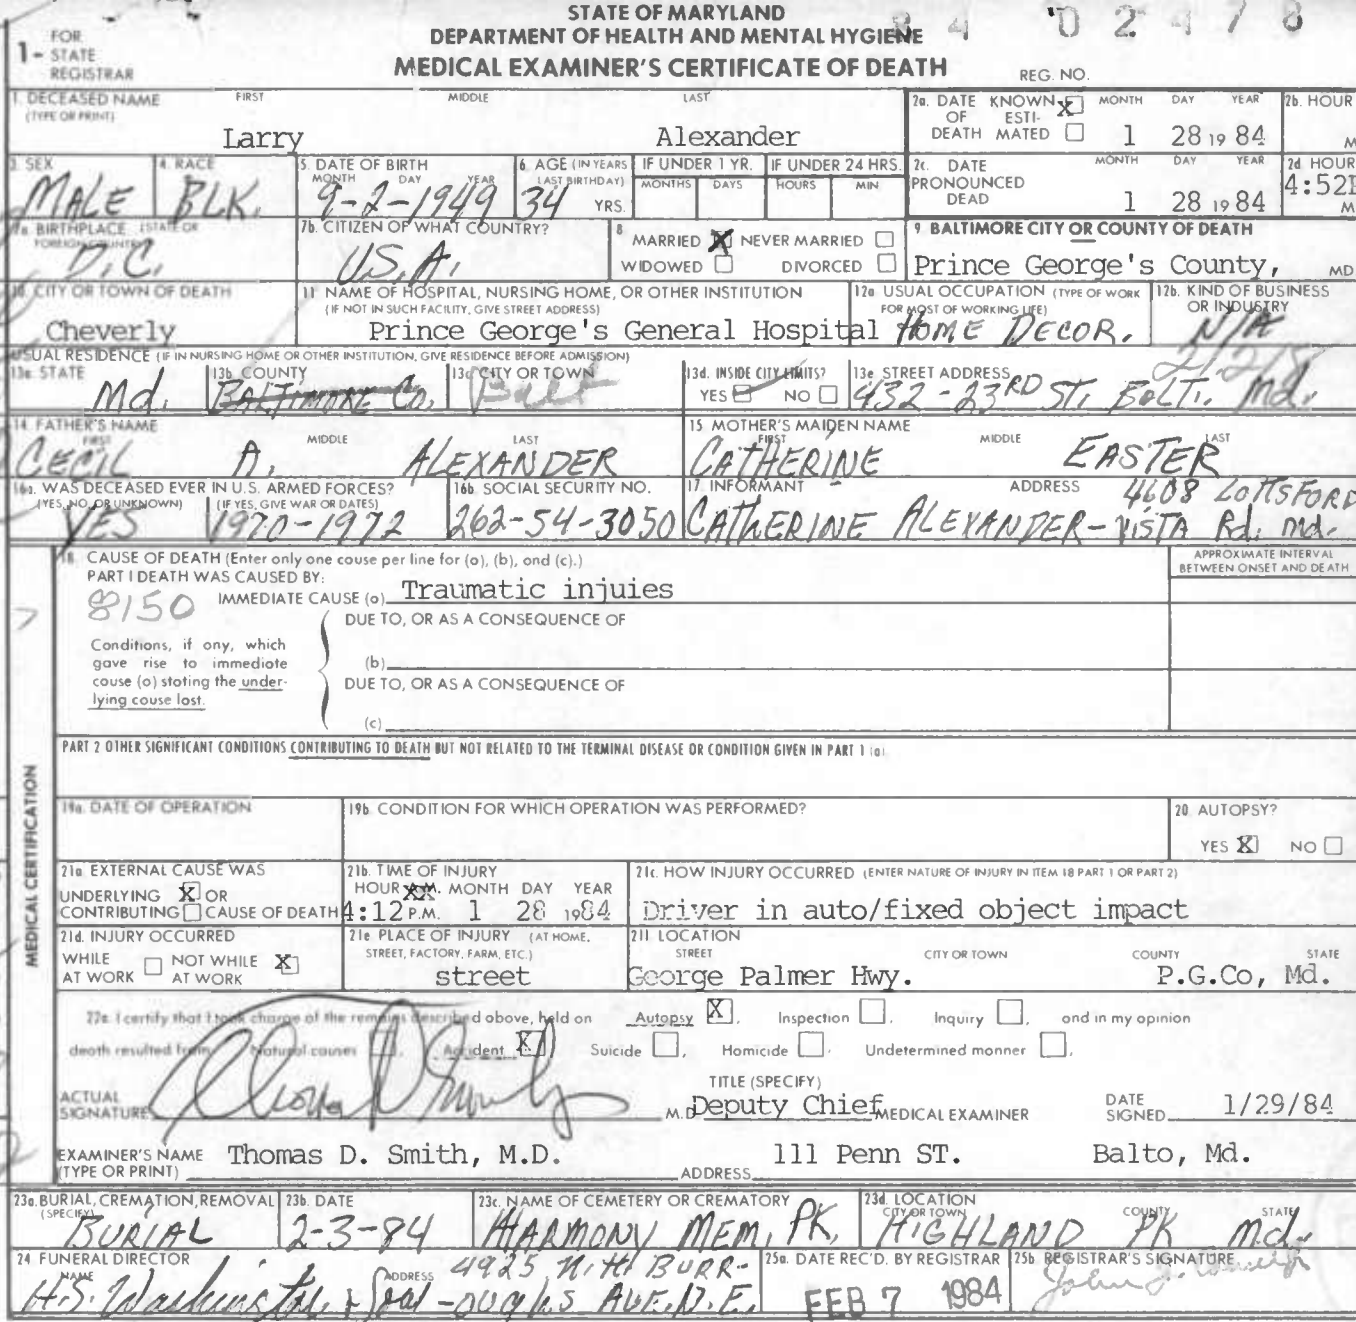 STATE OF MARYLAND
DEPARTMENT OF HEALTH AND MENTAL HYGIENE
MEDICAL EXAMINER'S CERTIFICATE OF DEATH
84 02478
FOR
1- STATE
REGISTRAR
REG. NO.
1. DECEASED NAME (TYPE OR PRINT) FIRST MIDDLE LAST
Larry Alexander
2a. DATE OF DEATH KNOWN X ESTI-MATED MONTH DAY YEAR
1 28 1984
2b. HOUR
M
3. SEX
MALE
4. RACE
BLK.
5. DATE OF BIRTH MONTH DAY YEAR
9-2-1949
6. AGE (IN YEARS LAST BIRTHDAY)
34 YRS.
IF UNDER 1 YR. MONTHS DAYS
IF UNDER 24 HRS. HOURS MIN
2c. DATE PRONOUNCED DEAD MONTH DAY YEAR
1 28 1984
2d HOUR
4:52P M
7a. BIRTHPLACE (STATE OR FOREIGN COUNTRY)
D.C.
7b. CITIZEN OF WHAT COUNTRY?
U.S.A.
8 MARRIED X NEVER MARRIED
WIDOWED DIVORCED
9. BALTIMORE CITY OR COUNTY OF DEATH
Prince George's County, MD
10. CITY OR TOWN OF DEATH
Cheverly
11. NAME OF HOSPITAL, NURSING HOME, OR OTHER INSTITUTION
(IF NOT IN SUCH FACILITY, GIVE STREET ADDRESS)
Prince George's General Hospital
12a USUAL OCCUPATION (TYPE OF WORK FOR MOST OF WORKING LIFE)
HOME DECOR.
12b. KIND OF BUSINESS OR INDUSTRY
N/A
USUAL RESIDENCE (IF IN NURSING HOME OR OTHER INSTITUTION, GIVE RESIDENCE BEFORE ADMISSION)
13a. STATE
Md.
13b. COUNTY
BALTIMORE Co.
13c. CITY OR TOWN
Balt
13d. INSIDE CITY LIMITS?
YES NO
13e STREET ADDRESS
21218
432-23RD ST. BOLT. Md.
14. FATHER'S NAME FIRST MIDDLE LAST
CECIL A. ALEXANDER
15. MOTHER'S MAIDEN NAME FIRST MIDDLE LAST
CATHERINE EASTER
16a. WAS DECEASED EVER IN U.S. ARMED FORCES?
(YES, NO, OR UNKNOWN) (IF YES, GIVE WAR OR DATES)
YES 1970-1972
16b. SOCIAL SECURITY NO.
262-54-3050
17. INFORMANT ADDRESS
4608 LOTTSFORD
CATHERINE ALEXANDER-VISTA Rd. Md.
18. CAUSE OF DEATH (Enter only one cause per line for (a), (b), and (c).)
APPROXIMATE INTERVAL BETWEEN ONSET AND DEATH
PART I DEATH WAS CAUSED BY:
8150
IMMEDIATE CAUSE (a) Traumatic injuies
DUE TO, OR AS A CONSEQUENCE OF
Conditions, if any, which gave rise to immediate cause (a) stating the under-lying cause last.
(b)
DUE TO, OR AS A CONSEQUENCE OF
(c)
PART 2 OTHER SIGNIFICANT CONDITIONS CONTRIBUTING TO DEATH BUT NOT RELATED TO THE TERMINAL DISEASE OR CONDITION GIVEN IN PART 1 (a)
MEDICAL CERTIFICATION
19a. DATE OF OPERATION
19b. CONDITION FOR WHICH OPERATION WAS PERFORMED?
20. AUTOPSY?
YES X NO
21a. EXTERNAL CAUSE WAS
UNDERLYING X OR
CONTRIBUTING CAUSE OF DEATH
21b. TIME OF INJURY
HOUR A.M. MONTH DAY YEAR
4:12 P.M. 1 28 1984
21c. HOW INJURY OCCURRED (ENTER NATURE OF INJURY IN ITEM 18 PART 1 OR PART 2)
Driver in auto/fixed object impact
21d. INJURY OCCURRED
WHILE AT WORK NOT WHILE AT WORK X
21e. PLACE OF INJURY (AT HOME, STREET, FACTORY, FARM, ETC.)
street
21f. LOCATION
STREET CITY OR TOWN COUNTY STATE
George Palmer Hwy. P.G.Co, Md.
22a. I certify that I took charge of the remains described above, held on Autopsy X, Inspection, Inquiry, and in my opinion
death resulted from Natural causes, Accident X, Suicide, Homicide, Undetermined manner.
ACTUAL SIGNATURE
M.D.
TITLE (SPECIFY)
Deputy Chief MEDICAL EXAMINER
DATE SIGNED 1/29/84
EXAMINER'S NAME (TYPE OR PRINT) Thomas D. Smith, M.D.
ADDRESS 111 Penn ST. Balto, Md.
23a. BURIAL, CREMATION, REMOVAL (SPECIFY)
BURIAL
23b. DATE
2-3-84
23c. NAME OF CEMETERY OR CREMATORY
HARMONY MEM. PK.
23d. LOCATION CITY OR TOWN COUNTY STATE
HIGHLAND PK Md.
24 FUNERAL DIRECTOR
NAME ADDRESS
4925 BURR-
H.S. Washington & AVE. N.E.
25a. DATE REC'D. BY REGISTRAR
FEB 7 1984
25b. REGISTRAR'S SIGNATURE